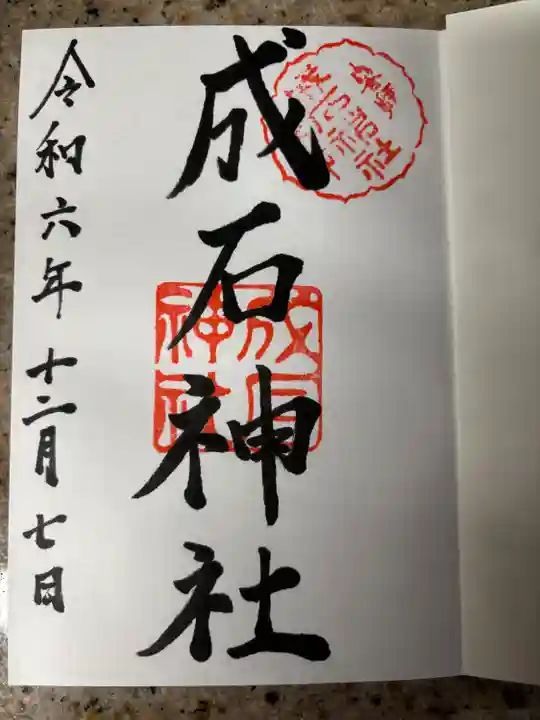 成石神社
成石
神社
令和六年十二月七日